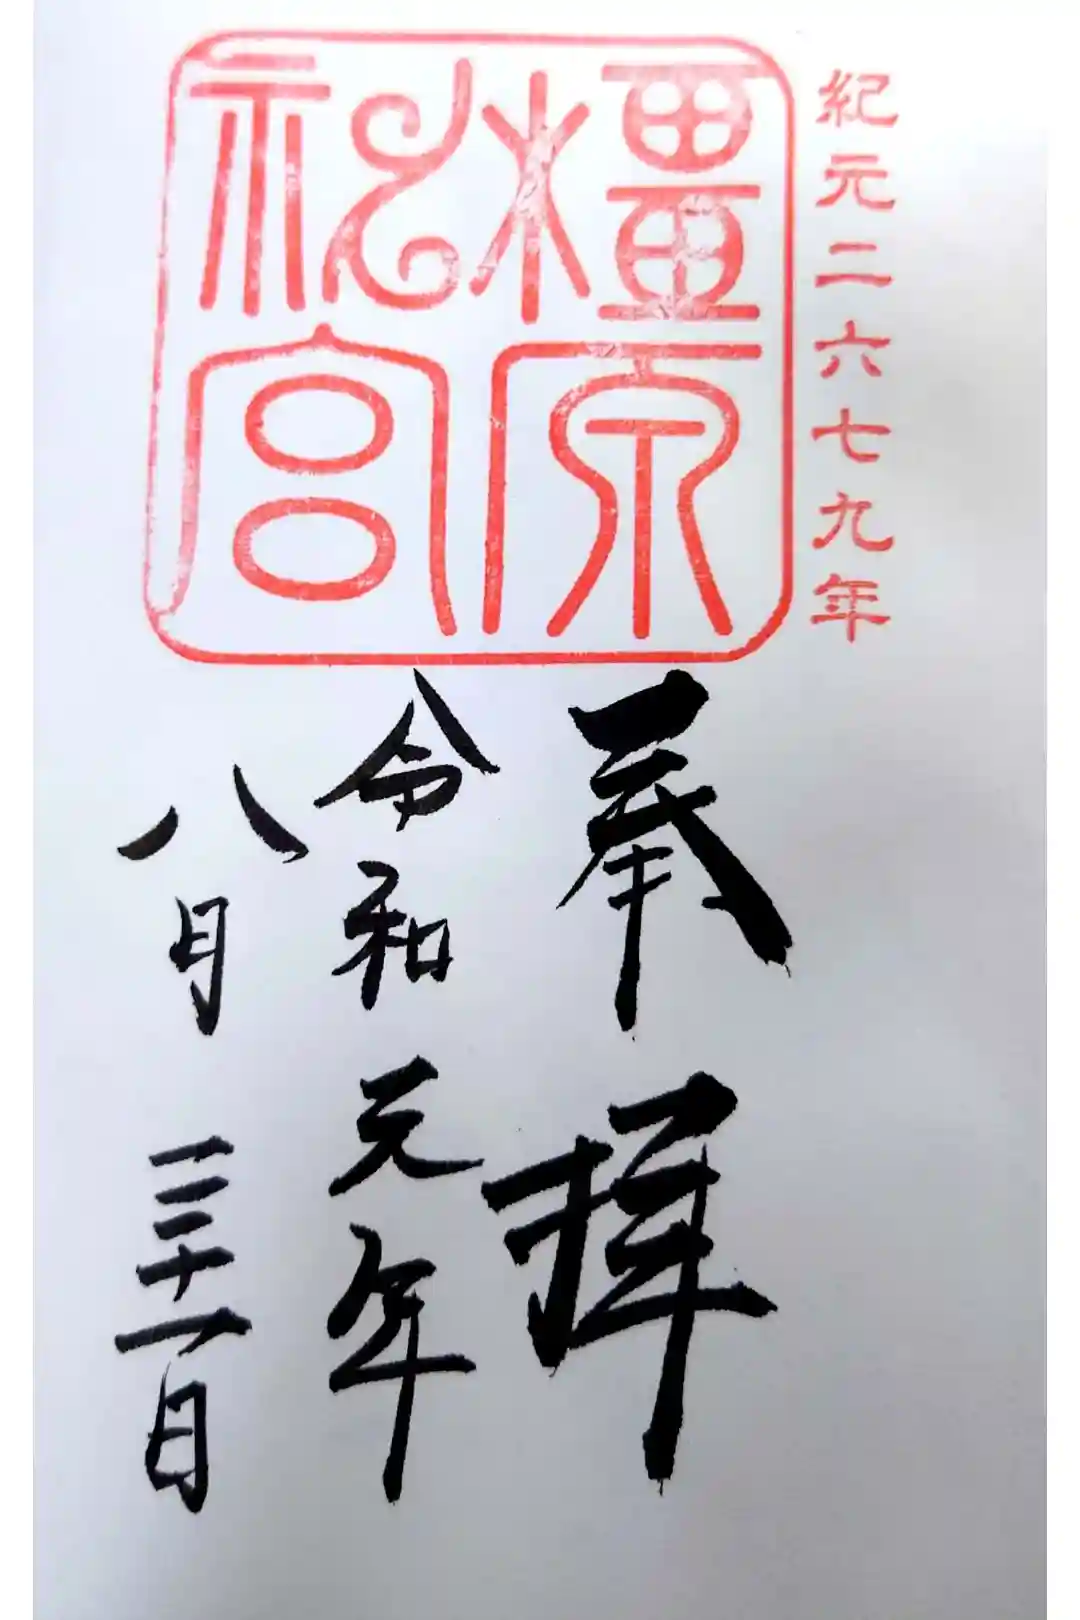 紀元二六七九年
橿原神宮
奉拝
令和元年
八月三十一日